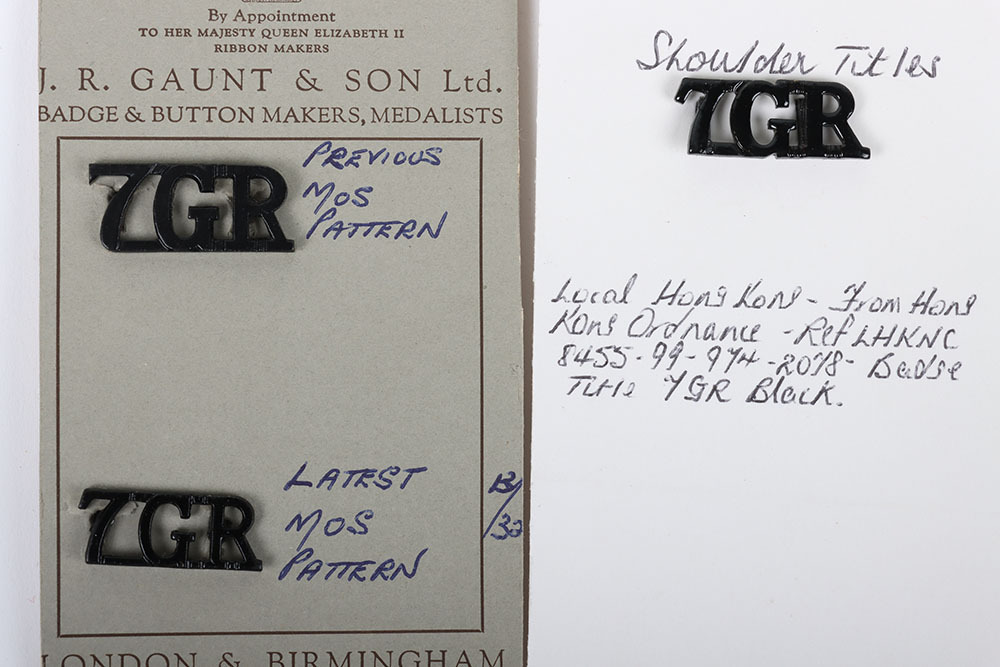 By Appointment
TO HER MAJESTY QUEEN ELIZABETH II
RIBBON MAKERS
J. R. GAUNT & SON Ltd.
BADGE & BUTTON MAKERS, MEDALISTS
7GR
PREVIOUS
MOS
PATTERN
7GR
LATEST
MOS
PATTERN
LONDON & BIRMINGHAM
Shoulder Titles
7GR
Local Hong Kong - From Hong
Kong Ordnance - Ref LHKNC
8455-99-974-2078- Badge
Title 7GR Black.